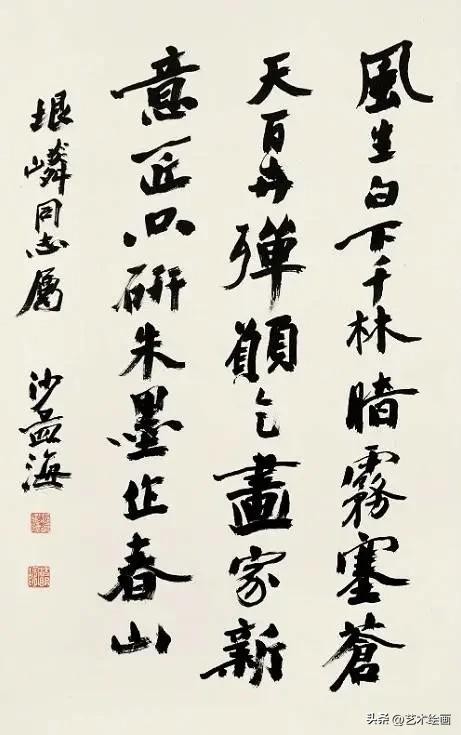 風生白下千林暗霧塞蒼
天百卉殫願乞畫家新
意匠只研朱墨作春山
垠嶙同志属
沙孟海
头条 @艺术绘画